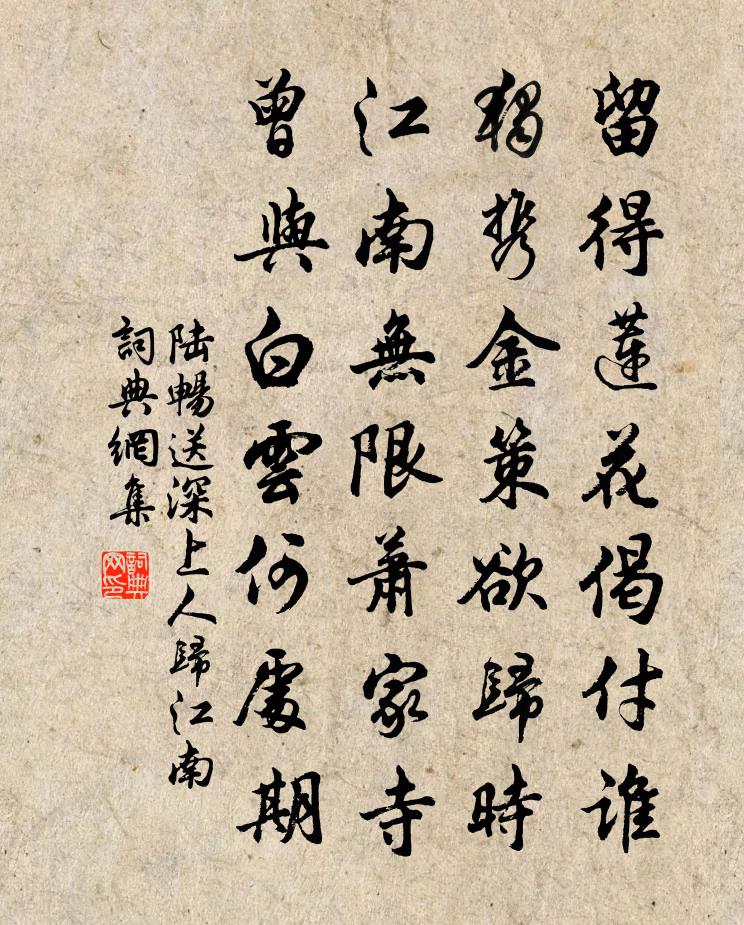 留得蓮花偈付誰
獨携金策欲歸時
江南無限蕭家寺
曾與白雲何處期
陸暢送深上人歸江南
詞典網集
詞典网印